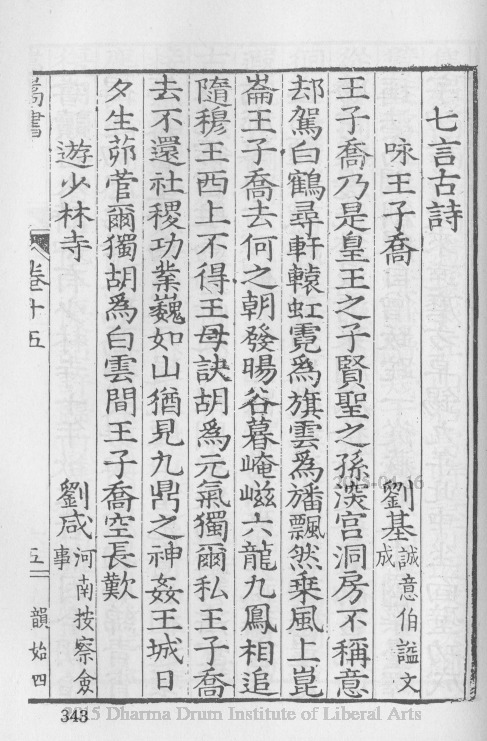 七言古詩
咏王子喬
劉基
誠意伯謚文
成
王子喬乃是皇王之子賢聖之孫深宫洞房不稱意
却駕白鶴尋軒轅虹霓為旗雲為旛飄然乗風上崑
崙王子喬去何之朝發暘谷暮崦嵫六龍九鳳相追
隨穆王西上不得王母訣胡為元氣獨爾私王子喬
去不還社稷功業巍如山猶見九鼎之神姦王城日
夕生茆菅爾獨胡為白雲間王子喬空長歎
遊少林寺
劉咸
河南按察僉
事
嵩書
卷十五
五
韻始四
343
2015 Dharma Drum Institute of Liberal Arts